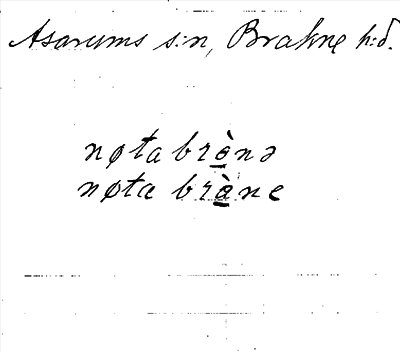 Asarums s:n, Bräkne h:d.
nøta brò̲nə
nøta brà̲ne